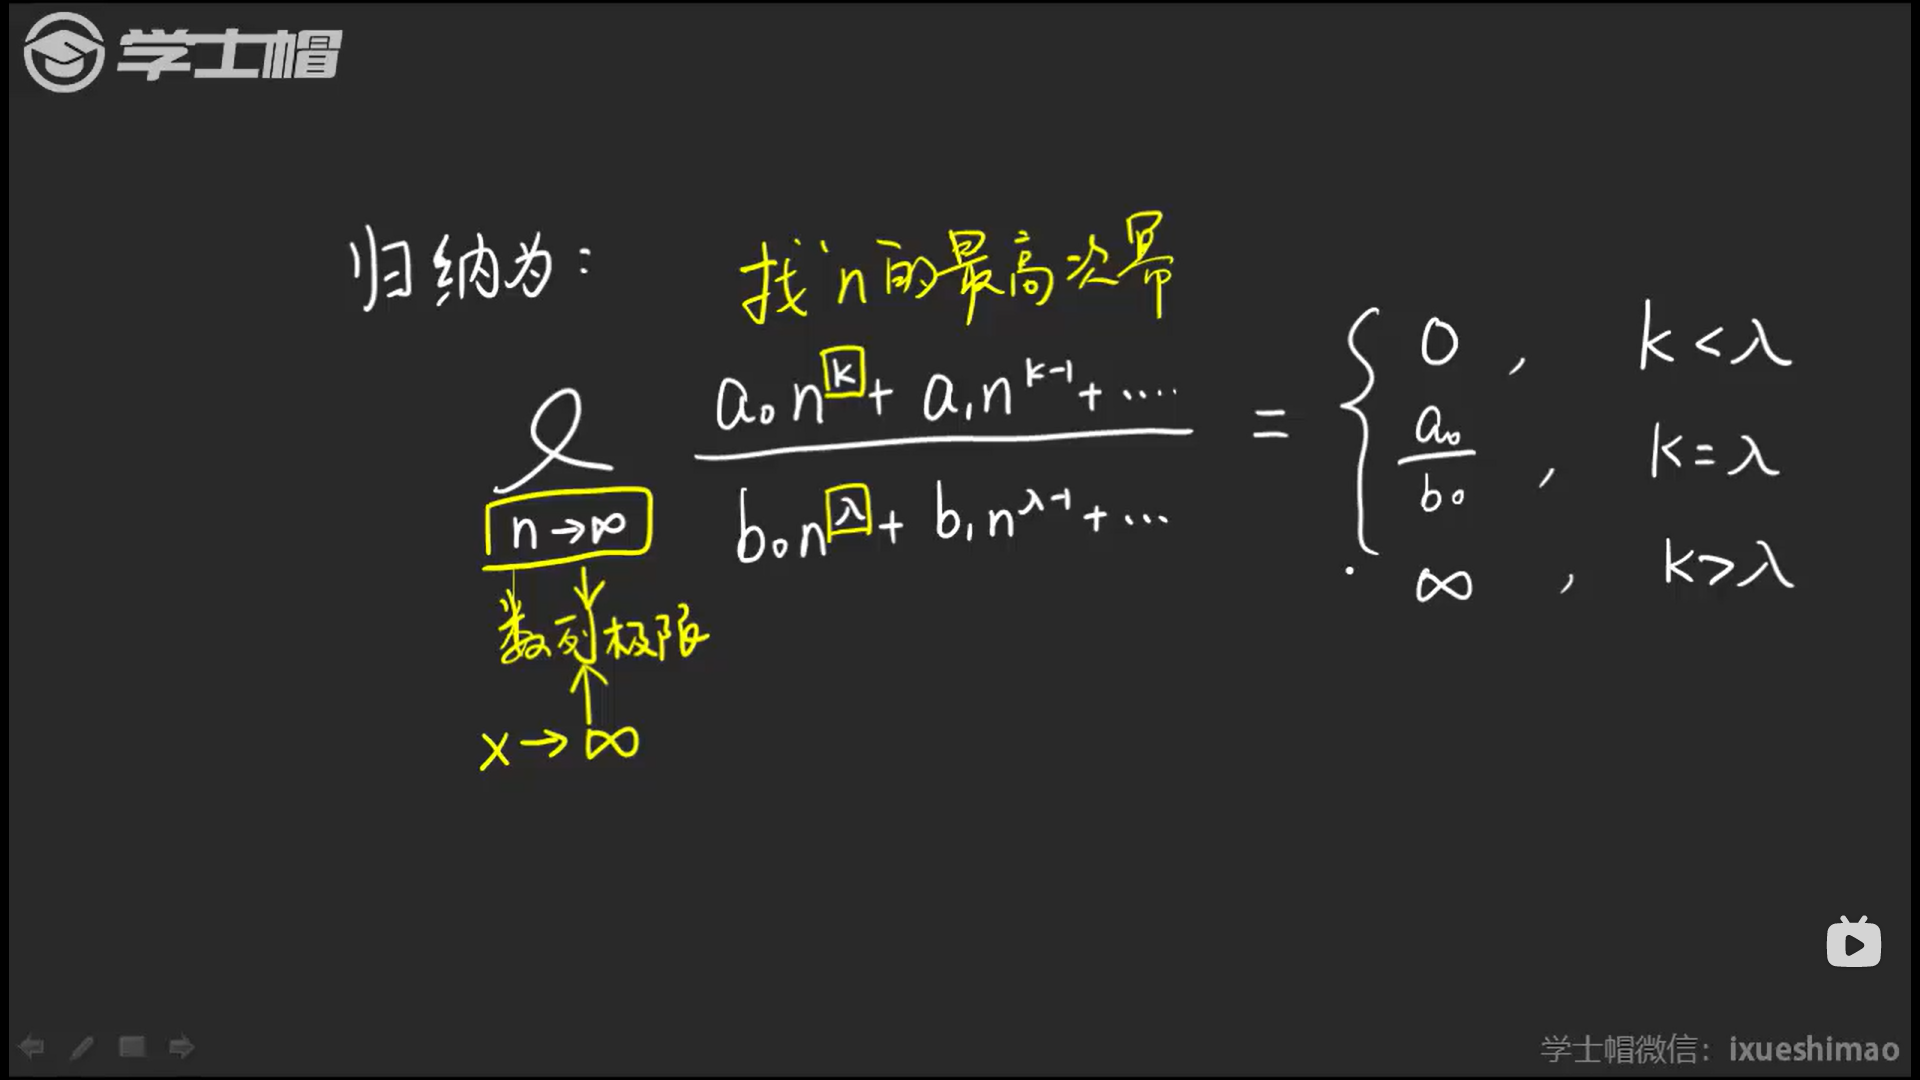 学士帽
归纳为：
找n的最高次幂
a₀n^k + a₁n^(k-1) + ....
b₀n^λ + b₁n^(λ-1) + ...
n→∞
=
0 , k<λ
a₀/b₀ , k=λ
∞ , k>λ
数列极限
x→∞
学士帽微信：ixueshimao